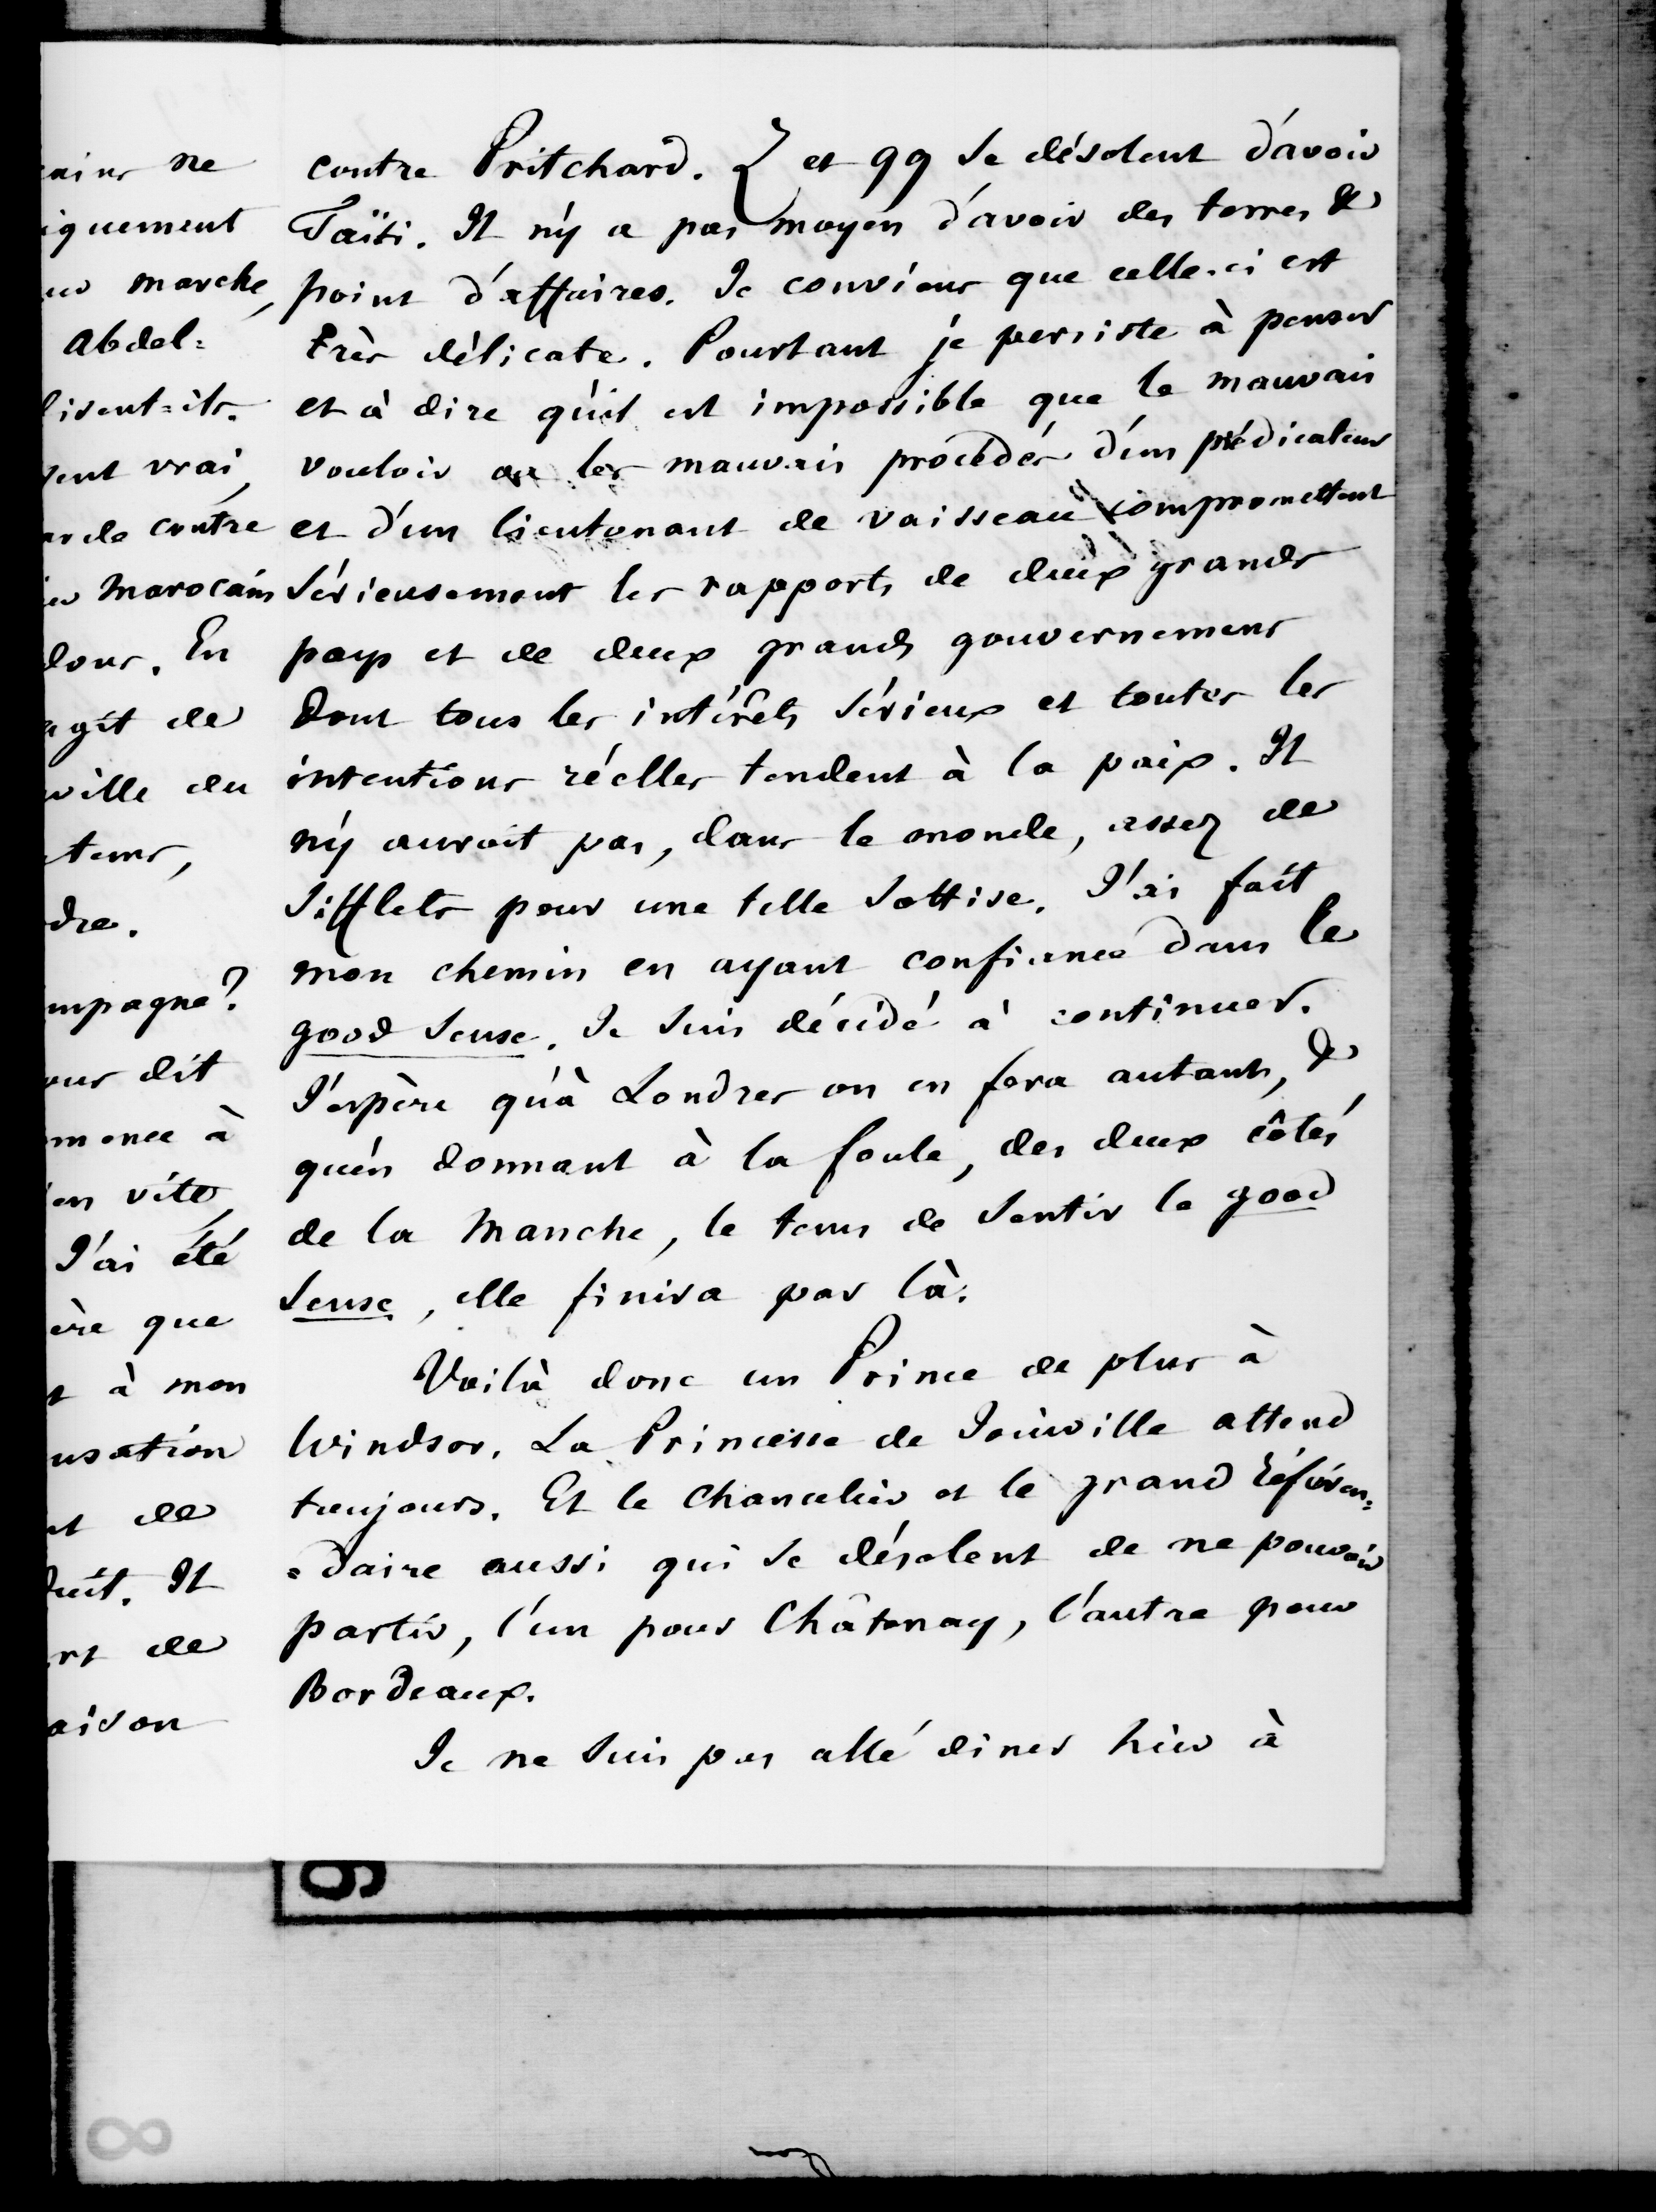 contre Pritchard. { et 99 se désolent d'avoir
Taïti. Il n'y a pas moyen d'avoir des terres &
point d'affaires. Je conviens que celle-ci est
très délicate. Pourtant je persiste à penser
et à dire qu'il est impossible que le mauvais
vouloir ou les mauvais procédés d'un prédicateur
et d'un lieutenant de vaisseau compromettent
sérieusement les rapports de deux grands
pays et de deux grands gouvernemens
dont tous les intérêts sérieux et toutes les
intentions réelles tendent à la paix. Il
n'y auroit pas, dans le monde, assez de
sifflets pour une telle sottise. J'ai fait
mon chemin en ayant confiance dans le
good sense. Je suis décidé à continuer.
J'espère qu'à Londres on en fera autant, &
qu'en donnant à la foule, des deux côtés
de la Manche, le tems de sentir le good
sense, elle finira par là.
Voilà donc un Prince de plus à
Windsor. La Princesse de Joinville attend
toujours. Et le Chancelier et le grand référen=
=daire aussi qui se désolent de ne pouvoir
partir, l'un pour Châtenay, l'autre pour
Bordeaux.
Je ne suis pas allé diner hier à
ains ne
iquement
marche,
Abdel=
disent-ils.
vrai,
contre
Marocain
dons. En
agit de
ville du
tems,
dre.
mpagne?
ous dit
mence à
en vite,
J'ai été
ère que
t à mon
usation
nt de
duit. Il
rt de
aison
9
8